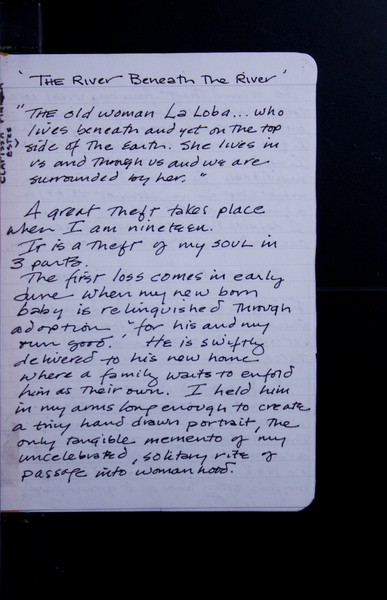 'THE River Beneath The River'
"THE old woman La Loba... who
lives beneath and yet on the top
side of the Earth. She lives in
us and through us and we are
surrounded by her."
CLARISSA PINKOLA
ESTES
A great Theft takes place
when I am nineteen.
It is a Theft of my soul in
3 parts.
The first loss comes in early
June when my new born
baby is relinquished Through
adoption "for his and my
own good." He is swiftly
delivered to his new home
where a family waits to enfold
him as their own. I held him
in my arms long enough to create
a tiny hand drawn portrait, the
only tangible memento of my
uncelebrated, solitary rite of
passage into womanhood.